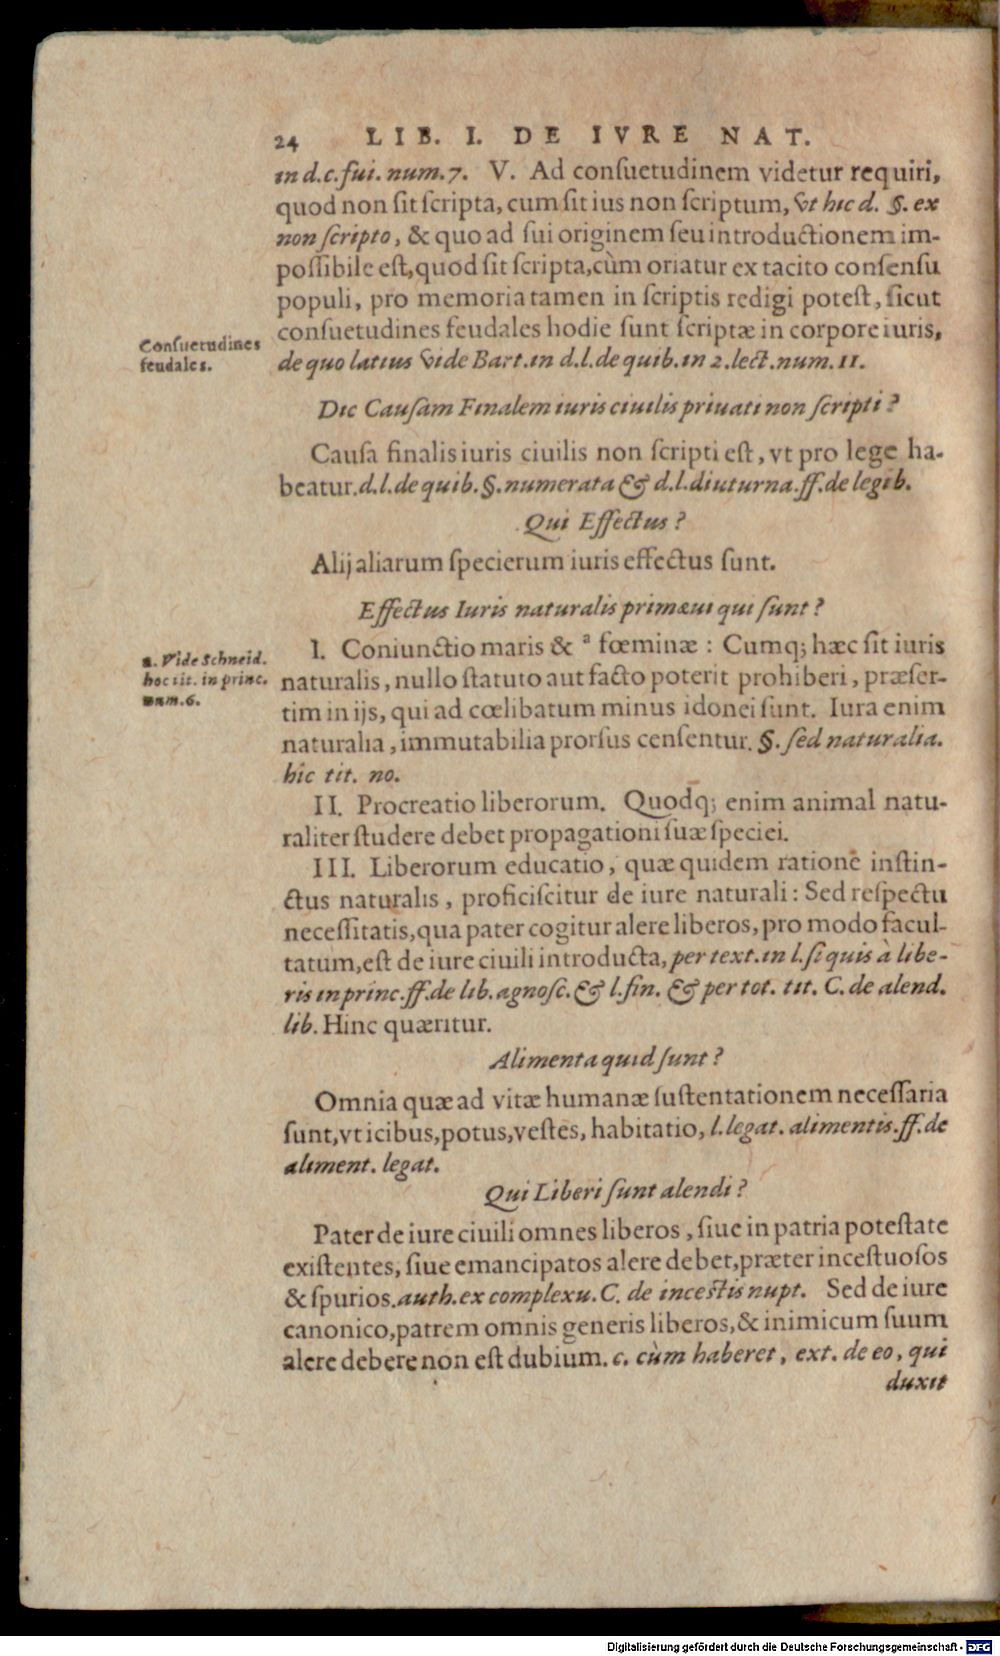 24 LIB. I. DE IVRE NAT.
in d.c.ſui. num.7. V. Ad conſuetudinem videtur requiri,
quod non ſit ſcripta, cum ſit ius non ſcriptum, vt hic d. §. ex
non ſcripto, & quo ad ſui originem ſeu introductionem im-
poſſibile eſt, quod ſit ſcripta, cùm oriatur ex tacito conſenſu
populi, pro memoria tamen in ſcriptis redigi poteſt, ſicut
conſuetudines feudales hodie ſunt ſcriptæ in corpore iuris,
Conſuetudines
feudales.
de quo latius vide Bart. in d.l. de quib. in 2. lect. num. 11.
Dic Cauſam Finalem iuris ciuilis priuati non ſcripti?
Cauſa finalis iuris ciuilis non ſcripti eſt, vt pro lege ha-
beatur. d.l. de quib. §. numerata & d.l. diuturna. ff. de legib.
Qui Effectus?
Alij aliarum ſpecierum iuris effectus ſunt.
Effectus Iuris naturalis primæui qui ſunt?
I. Coniunctio maris & ª fœminæ : Cumq; hæc ſit iuris
a. Vide Schneid.
hoc tit. in princ.
num. 6.
naturalis, nullo ſtatuto aut facto poterit prohiberi, præſer-
tim in ijs, qui ad cœlibatum minus idonei ſunt. Iura enim
naturalia, immutabilia prorſus cenſentur. §. ſed naturalia.
hic tit. no.
II. Procreatio liberorum. Quodq; enim animal natu-
raliter ſtudere debet propagationi ſuæ ſpeciei.
III. Liberorum educatio, quæ quidem ratione inſtin-
ctus naturalis, proficiſcitur de iure naturali: Sed reſpectu
neceſſitatis, qua pater cogitur alere liberos, pro modo facul-
tatum, eſt de iure ciuili introducta, per text. in l. ſi quis à libe-
ris in princ. ff. de lib. agnoſc. & l. fin. & per tot. tit. C. de alend.
lib. Hinc quæritur.
Alimenta quid ſunt?
Omnia quæ ad vitæ humanæ ſuſtentationem neceſſaria
ſunt, vt icibus, potus, veſtes, habitatio, l. legat. alimentis. ff. de
aliment. legat.
Qui Liberi ſunt alendi?
Pater de iure ciuili omnes liberos, ſiue in patria poteſtate
exiſtentes, ſiue emancipatos alere debet, præter inceſtuoſos
& ſpurios. auth. ex complexu. C. de inceſtis nupt. Sed de iure
canonico, patrem omnis generis liberos, & inimicum ſuum
alere debere non eſt dubium. c. cùm haberet, ext. de eo, qui
duxit
Digitalisierung gefördert durch die Deutsche Forschungsgemeinschaft - DFG